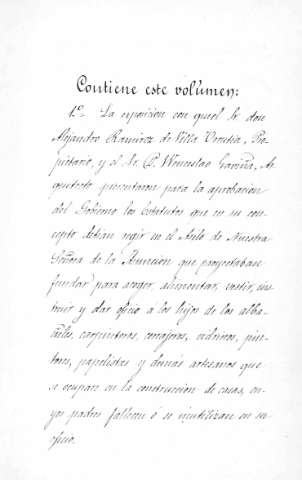 Contiene este volúmen:
1º La esposicion con que el Sr. don
Alejandro Ramirez de Villa Urrutia, Pro-
pietario, y el Sr. D. Wenceslao Gaviña, Ar-
quitecto presentaron para la aprobación
del Gobierno los Estatutos que en su con-
cepto debian regir en el Asilo de Nuestra
Señora de la Asuncion que proyectaban
fundar para acoger, alimentar, vestir, ins-
truir y dar oficio a los hijos de los alba-
ñiles, carpinteros, cerrajeros, vidrieros, pin-
tores, papelistas y demás artesanos que
se ocupan en la construccion de casas, cu-
yos padres fallecen ó se inutilizan en su
oficio.